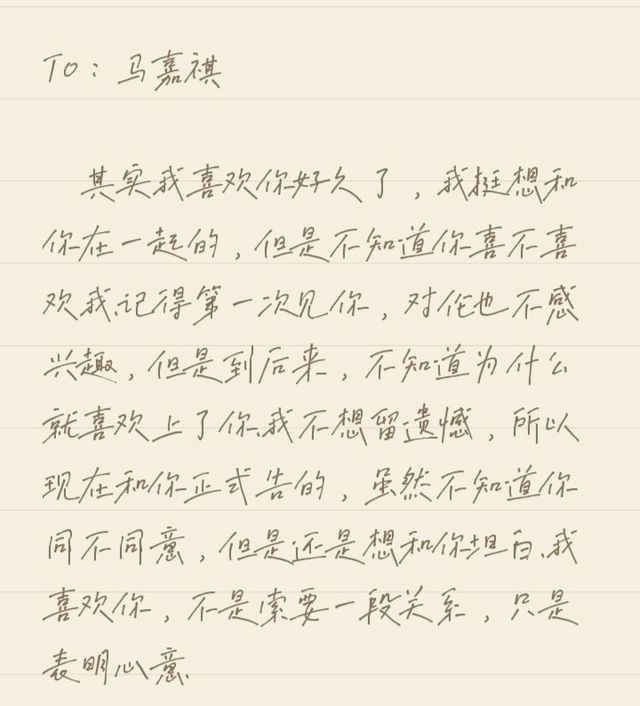 TO：马嘉祺
其实我喜欢你好久了，我挺想和
你在一起的，但是不知道你喜不喜
欢我.记得第一次见你，对你也不感
兴趣，但是到后来，不知道为什么
就喜欢上了你.我不想留遗憾，所以
现在和你正式告的，虽然不知道你
同不同意，但是还是想和你坦白.我
喜欢你，不是索要一段关系，只是
表明心意.